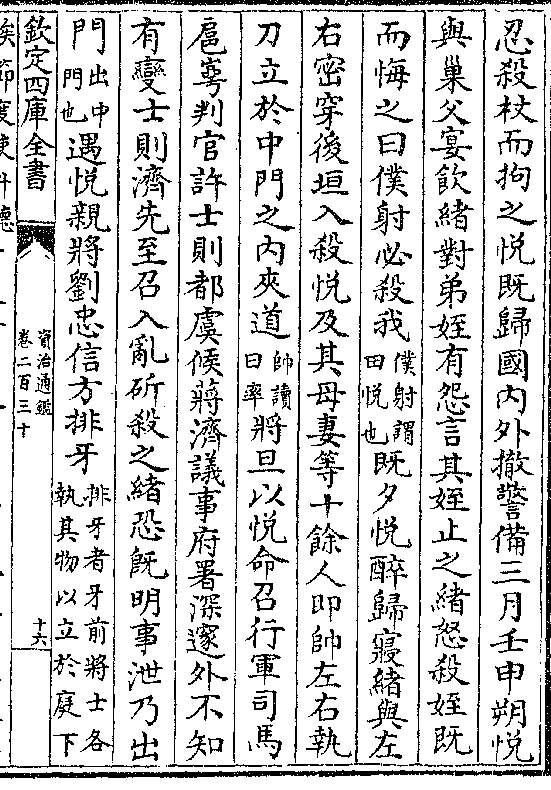 忍殺杖而拘之悦既歸國内外撤警備三月壬申朔悦
與巢父宴飲緒對弟姪有怨言其姪止之緒怒殺姪既
而悔之曰僕射必殺我僕射謂田悦也既夕悦醉歸寢緒與左
右密穿後垣入殺悦及其母妻等十餘人即帥左右執
刀立於中門之内夾道帥讀曰率將旦以悦命召行軍司馬
扈崿判官許士則都虞候蔣濟議事府署深邃外不知
有變士則濟先至召入亂斫殺之緒恐既明事泄乃出
門出中門也遇悦親將劉忠信方排牙排牙者牙前將士各執其物以立於庭下
欽定四庫全書
資治通鑑
卷二百三十
十六